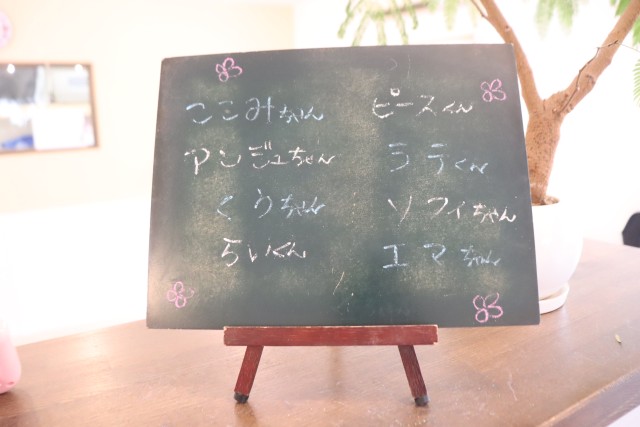 ここみちゃん
アンジュちゃん
くうちゃん
らいくん
ピースくん
ララくん
ソフィちゃん
エマちゃん